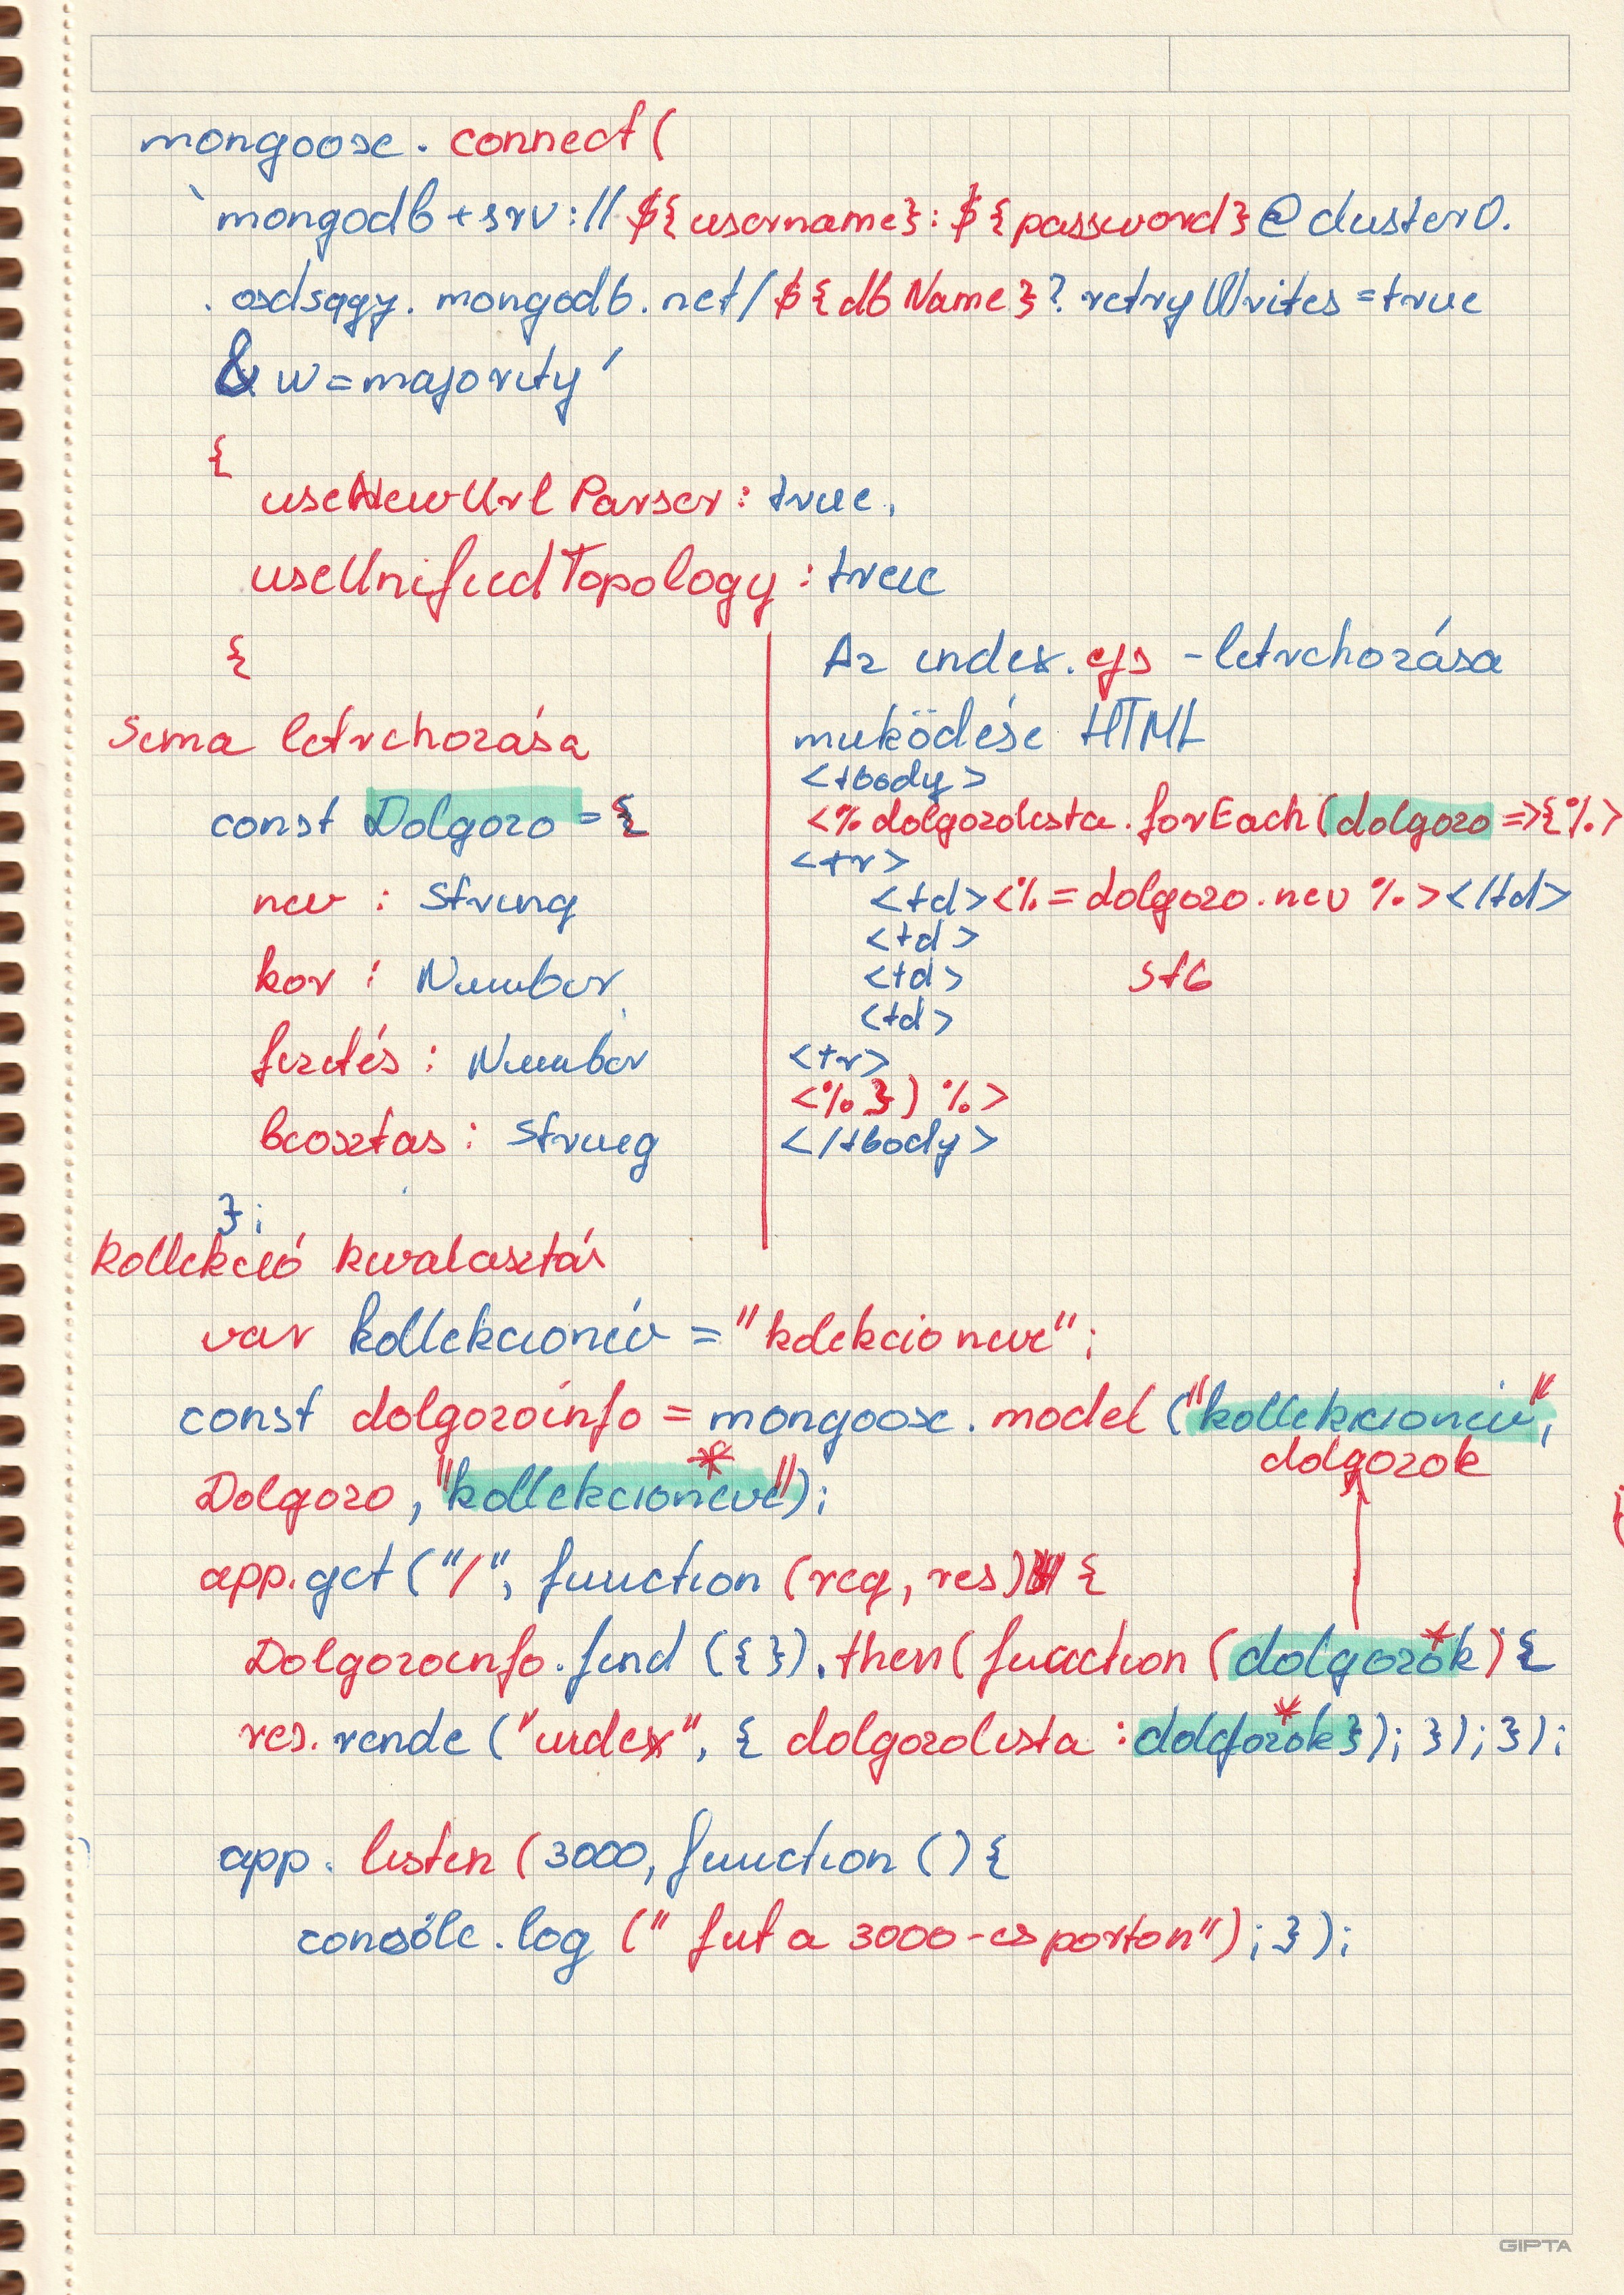 mongoose. connect(
`mongodb+srv://${username}:${password}@cluster0.
. osdsqgy. mongodb.net/${dbName}?retryWrites=true
& w=majority'
{
useNewUrlParser: true,
useUnifiedTopology: true
{
Séma létrehozása
const Dolgozo = {
nev : String
kor : Number
fizetés : Number
beosztas : String
};
Az index.ejs - létrehozása
muködése HTML
<tbody>
<% dolgozolista.forEach(dolgozo =>{%>
<tr>
<td><%= dolgozo.nev %></td>
<td>
<td> stb
<td>
<tr>
<% }) %>
</tbody>
kollekció kivalasztás
var kollekcionév = "kolekcio neve";
const dolgozoinfo = mongoose.model ("kollekcionév",
dolgozok
Dolgozo, "kollekcioneve");
*
app.get("/", function (req, res) {
Dolgozoinfo.find ({}).then(function (dolgozok) {
*
res.rende ("index", { dolgozolista : dolgozok}); }); });
*
app. listen (3000, function () {
console.log (" fut a 3000-es porton"); });
GIPTA